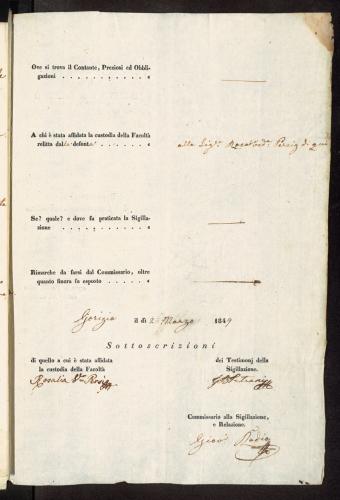 Ove si trova il Contante, Preziosi ed Obbli-
gazioni . . . . . . . . . . . «
A chi è stata affidata la custodia della Facoltà
relitta dalla defonta . . . . . . . «
alla Sig.ra
Se? quale? e dove fu praticata la Sigilla-
zione . . . . . . . . . . . «
Rimarche da farsi dal Commissario, oltre
quanto finora fu esposto . . . . . . «
Gorizia il dì 2 Marzo 1849
Sottoscrizioni
di quello a cui è stata affidata
la custodia della Facoltà
dei Testimonj della
Sigillazione.
Rosalia
Commissario alla Sigillazione,
e Relazione.